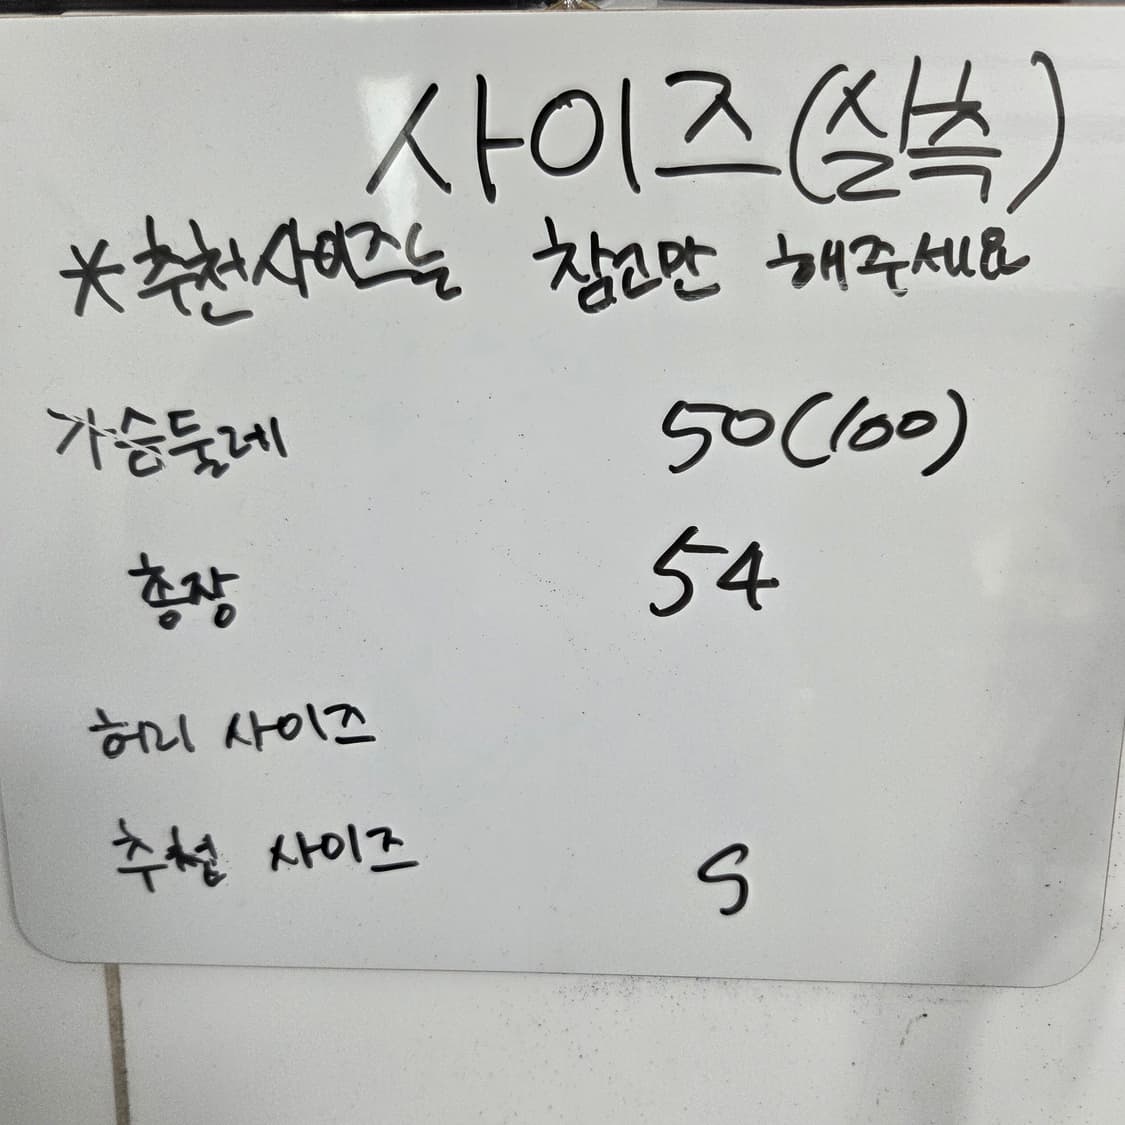 사이즈(실측)
*추천사이즈는 참고만 해주세요
가슴둘레 50(100)
총장 54
허리 사이즈
추천 사이즈 S